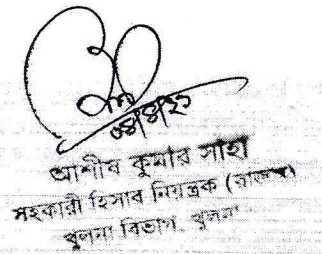 ০৪/৪/২১
আশীষ কুমার সাহা
সহকারী হিসাব নিয়ন্ত্রক (রাজস্ব)
খুলনা বিভাগ, খুলনা